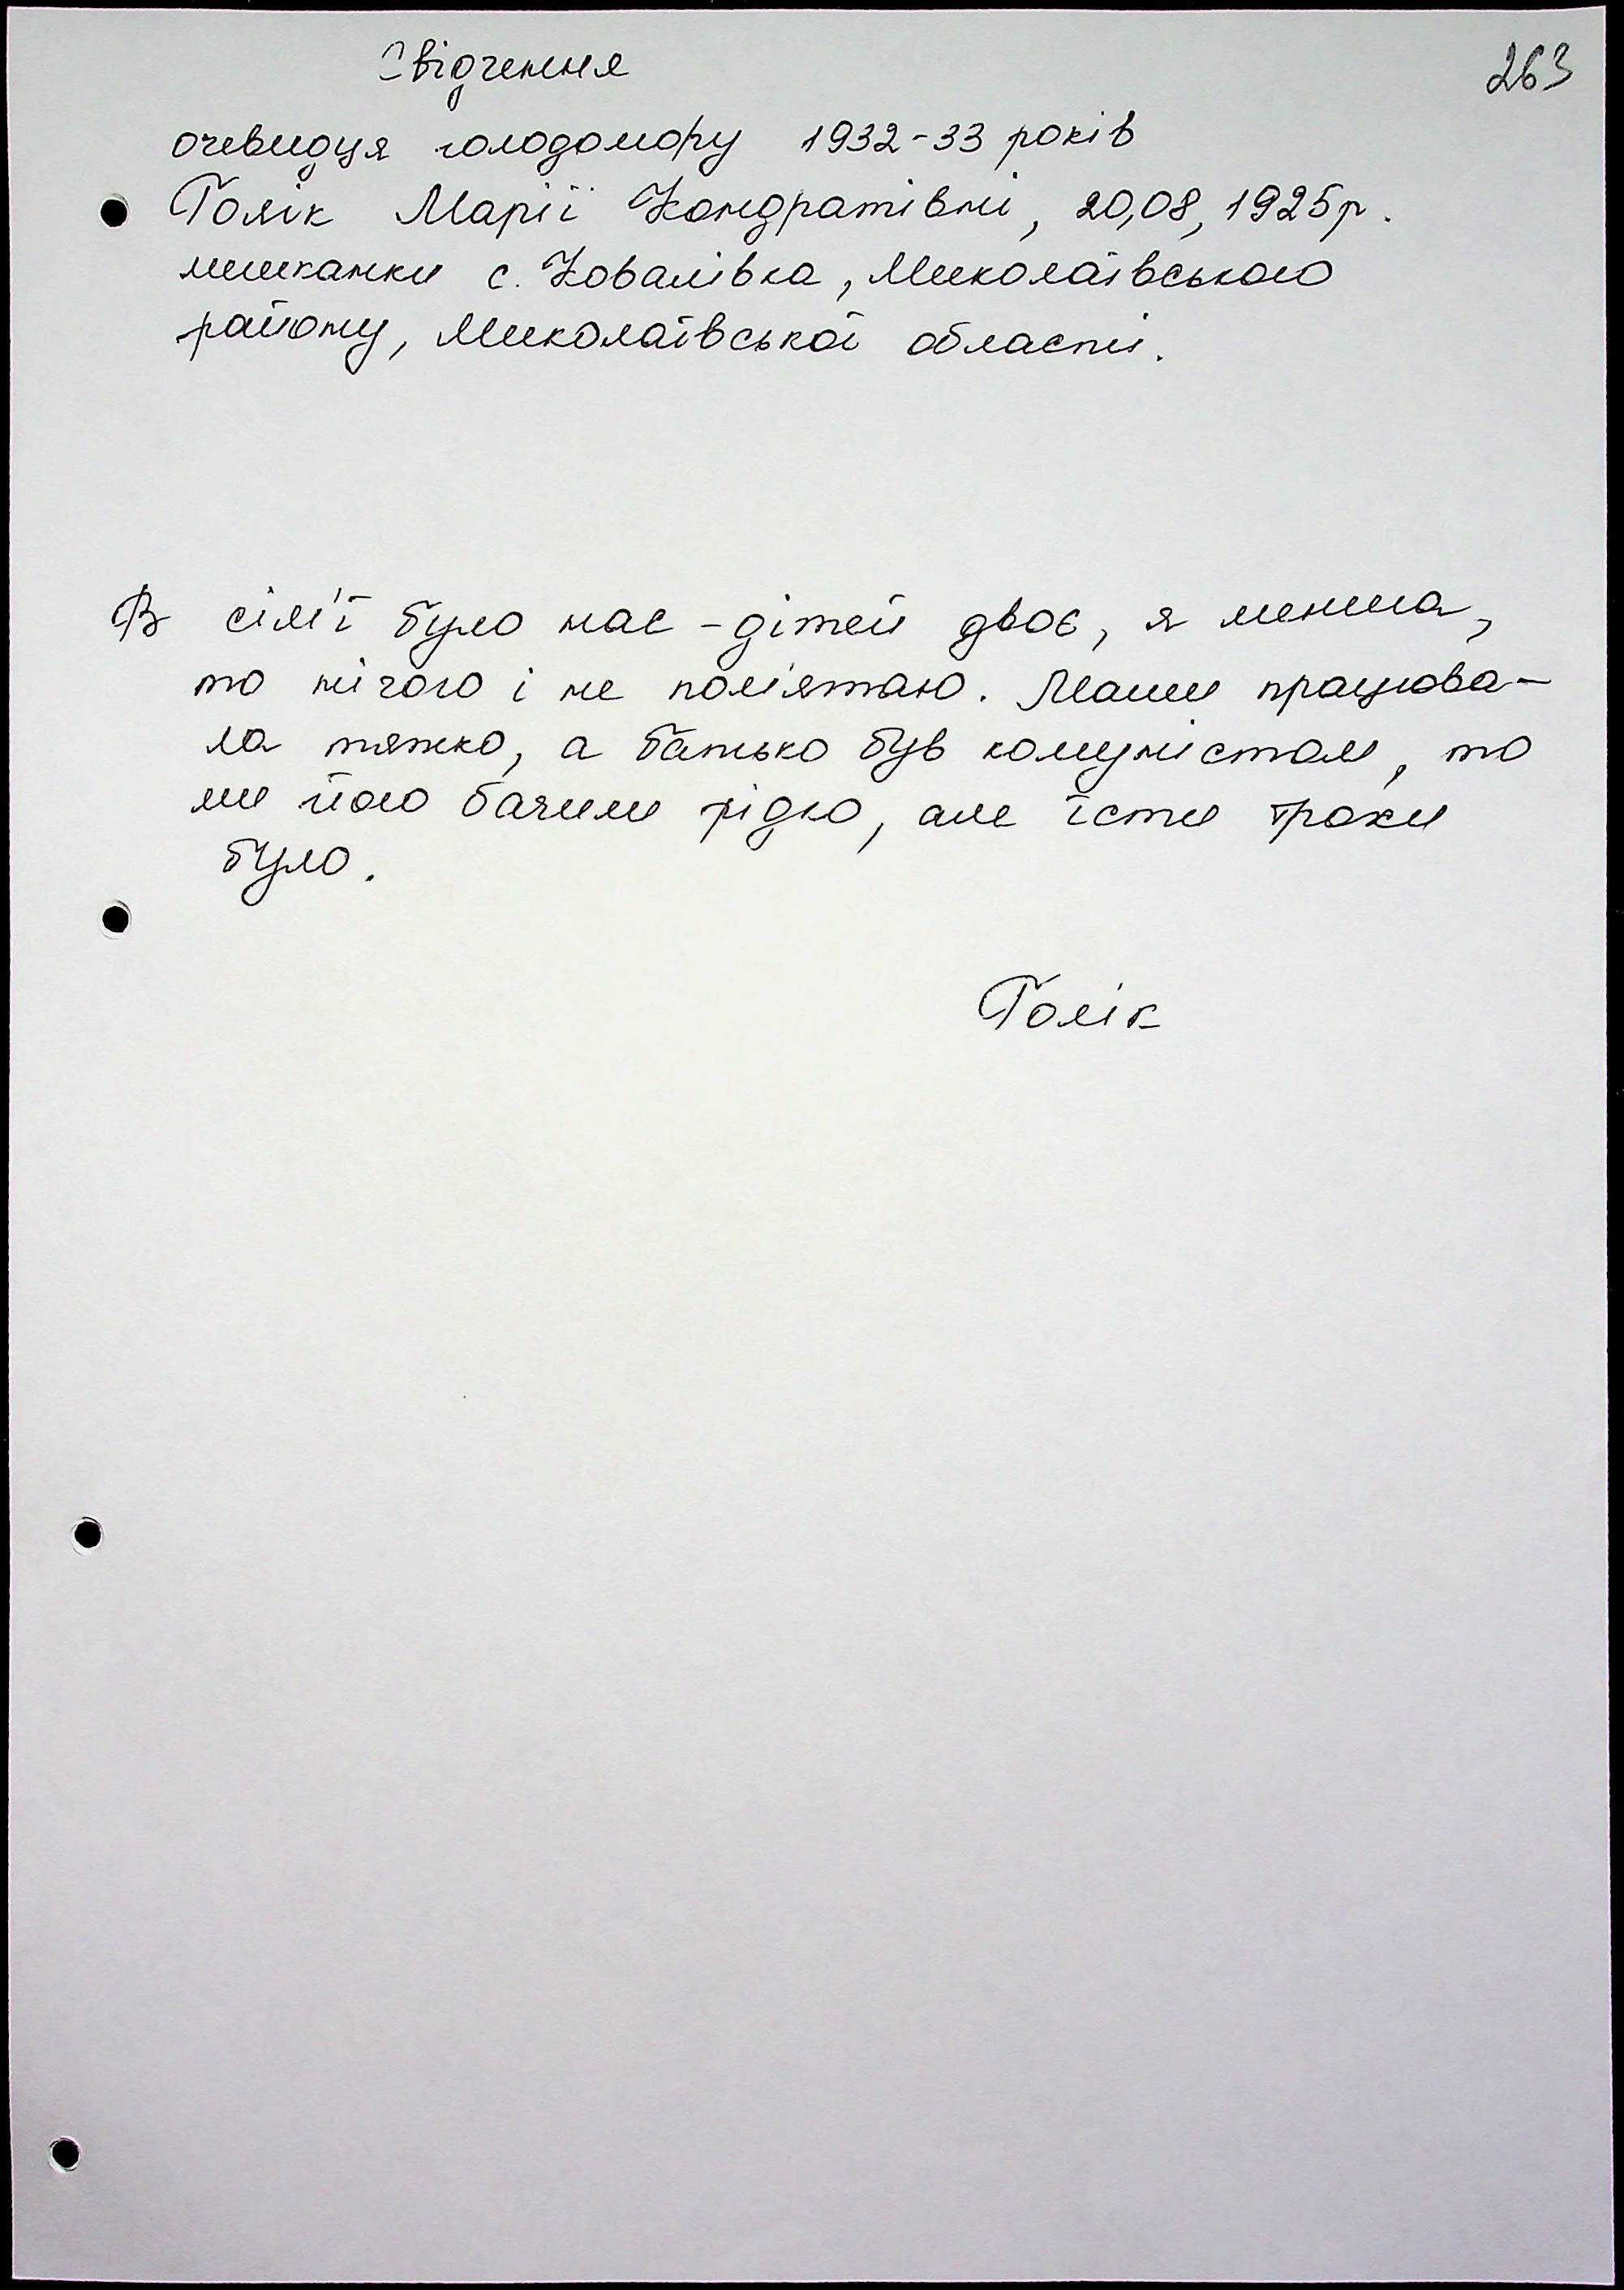 Свідчення
263
очевидця голодомору 1932-33 років
Голік Марії Кондратівні, 20,08, 1925р.
мешканки с. Ковалівка, Миколаївського
району, Миколаївської області.
В сім'ї було нас - дітей двоє, я менша,
то нічого і не пом'ятаю. Мати працюва-
ла тяжко, а батько був комуністом, то
ми його бачили рідко, але їсти трохи
було.
Голік